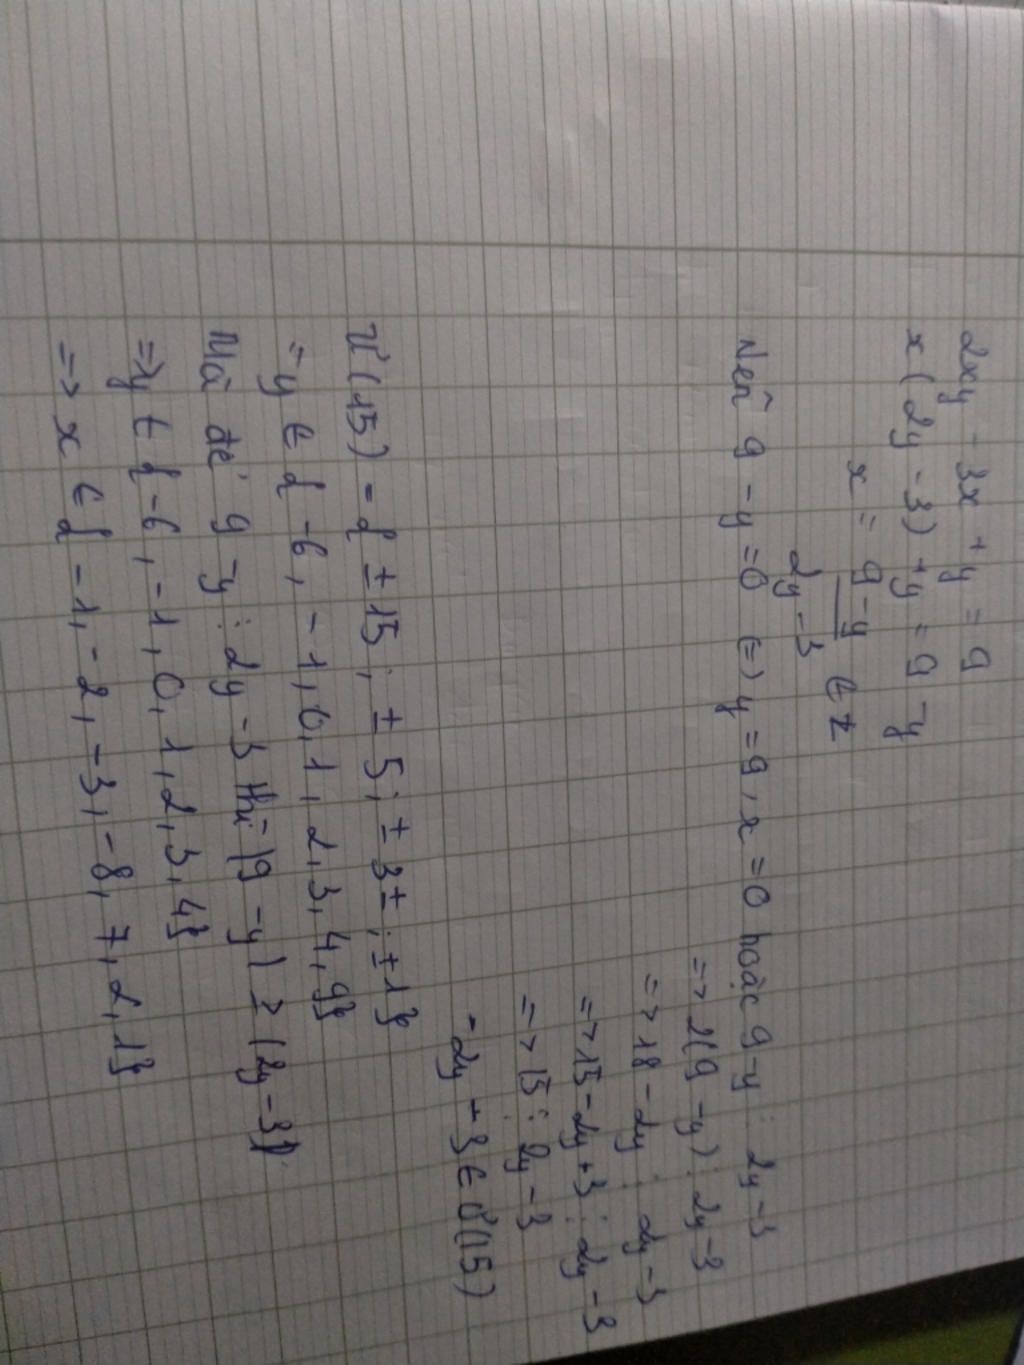 2xy - 3x + y = 9
x(2y - 3) + y = 9 - y
x = 9 - y / 2y - 3 ∈ Z
Nên 9 - y = 0 (=) y = 9, x = 0 hoặc 9 - y ⋮ 2y - 3
=> 2(9 - y) ⋮ 2y - 3
=> 18 - 2y ⋮ 2y - 3
=> 15 - 2y + 3 ⋮ 2y - 3
=> 15 ⋮ 2y - 3
- 2y - 3 ∈ Ư(15)
Ư(15) = { ± 15; ± 5; ± 3 ±; ± 1}
= y ∈ { -6, -1, 0, 1, 2, 3, 4, 9}
Mà để 9 - y ⋮ 2y - 3 thì |9 - y| ≥ |2y - 3|.
=> y ∈ { -6, -1, 0, 1, 2, 3, 4}
=> x ∈ { -1, -2, -3, -8, 7, 2, 1}